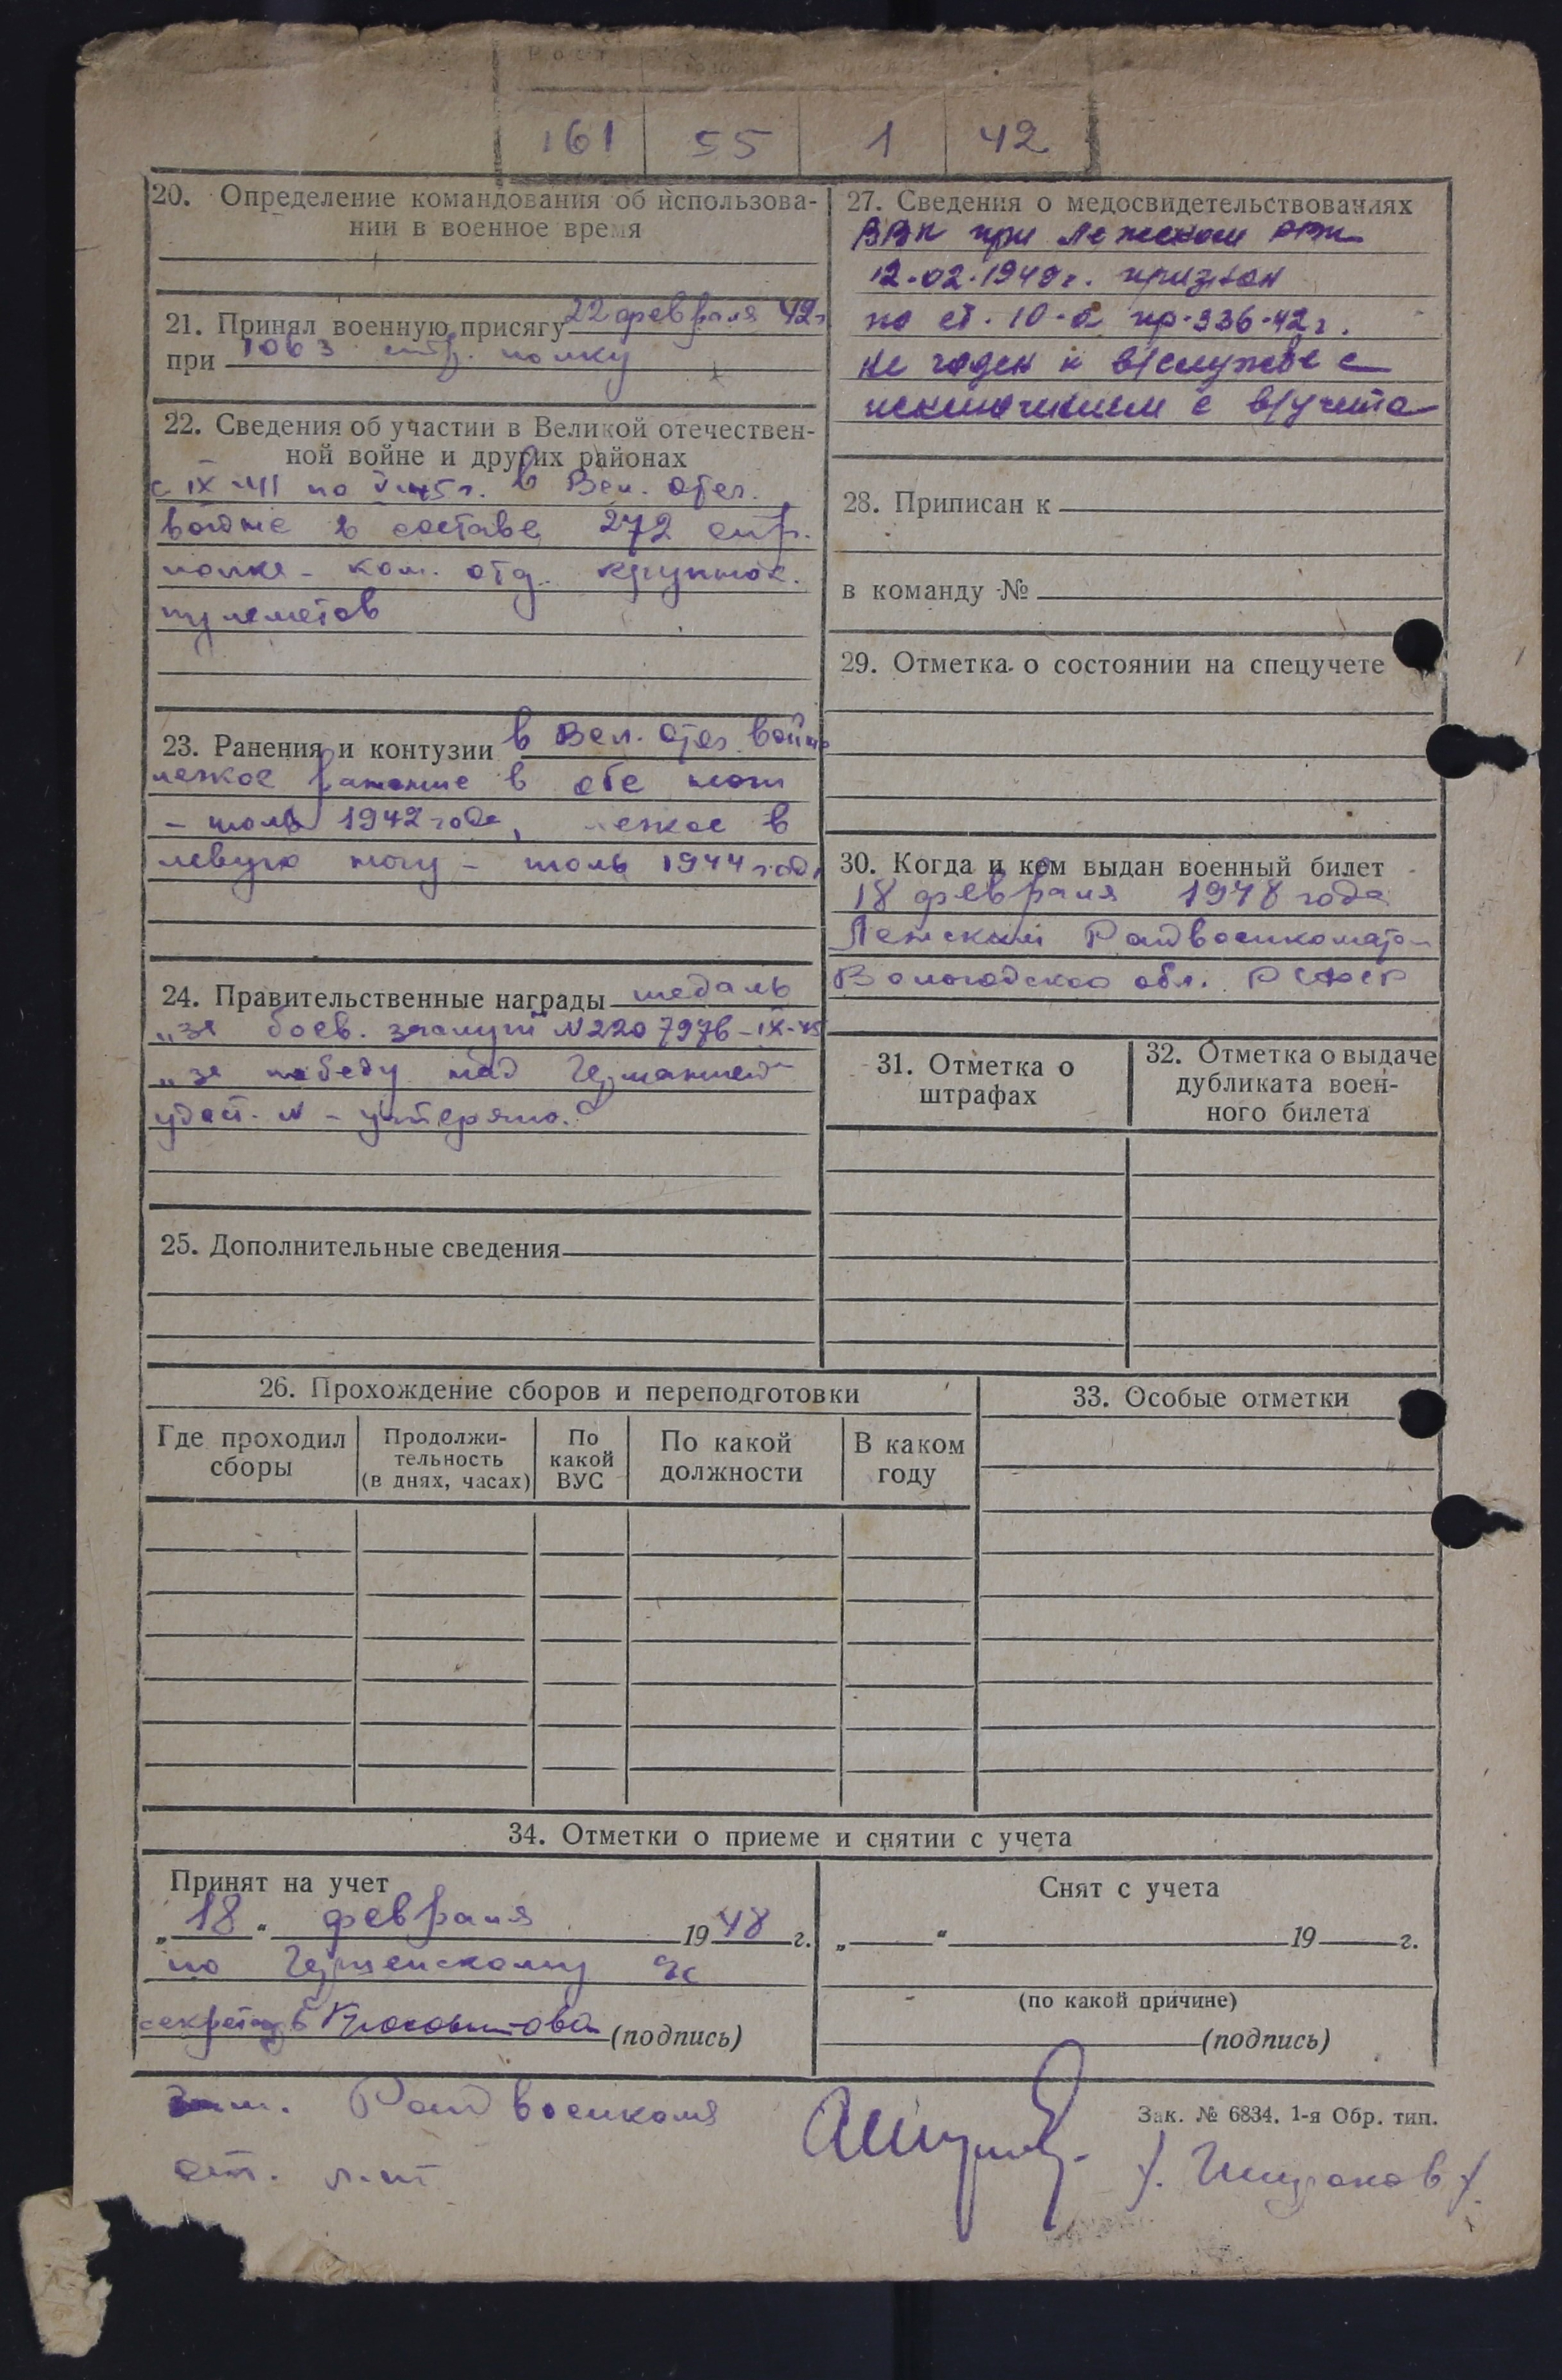 Рост
161 55 1 42
20. Определение командования об использова-
нии в военное время
21. Принял военную присягу 22 февраля 42г
при 1063 стр. полку
22. Сведения об участии в Великой отечествен-
ной войне и других районах
с IX-41 по V-45г. в Вел. Отеч.
войне в составе 272 стр.
полка - ком. отд. крупнок.
пулеметов
23. Ранения и контузии в Вел. Отеч. войне
легкое ранение в обе ноги
- июль 1942 года, легкое в
левую ногу - июль 1944 года
24. Правительственные награды медаль
„за боев. заслуги N 2207976-IX-45
„за победу над Германией"
удост. N - утеряно.
25. Дополнительные сведения
26. Прохождение сборов и переподготовки
Где проходил сборы
Продолжи-
тельность
(в днях, часах)
По какой ВУС
По какой должности
В каком году
27. Сведения о медосвидетельствованиях
ВВК при Лежском РВК
12.02.1948г. признан
по ст. 10-а пр-336-42г.
не годен к в/службе с
исключением с в/учета
28. Приписан к
в команду №
29. Отметка о состоянии на спецучете
30. Когда и кем выдан военный билет
18 февраля 1948 года
Лежский Райвоенкомато
Вологодской обл. РСФСР
31. Отметка о
штрафах
32. Отметка о выдаче
дубликата воен-
ного билета
33. Особые отметки
34. Отметки о приеме и снятии с учета
Принят на учет
„18“ февраля 1948 г.
по
секретарь (подпись)
Снят с учета
„ “ 19 г.
(по какой причине)
(подпись)
Зам. Райвоенкома
ст. л-нт
Зак. № 6834. 1-я Обр. тип.